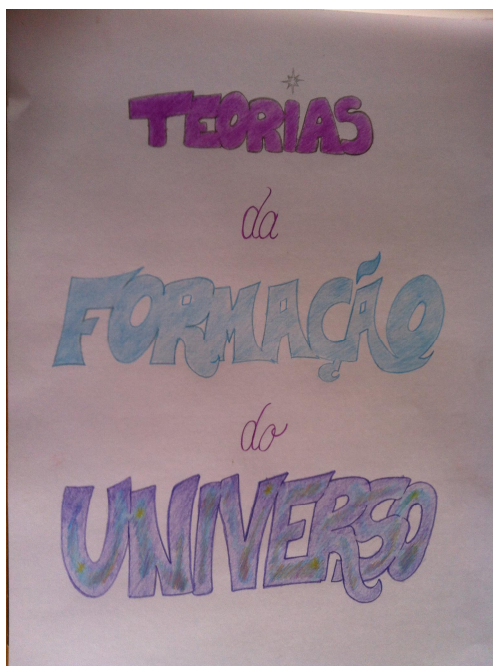 TEORIAS
da
FORMAÇÃO
do
UNIVERSO